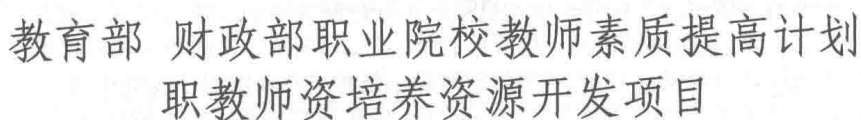 教育部 财政部职业院校教师素质提高计划
职教师资培养资源开发项目